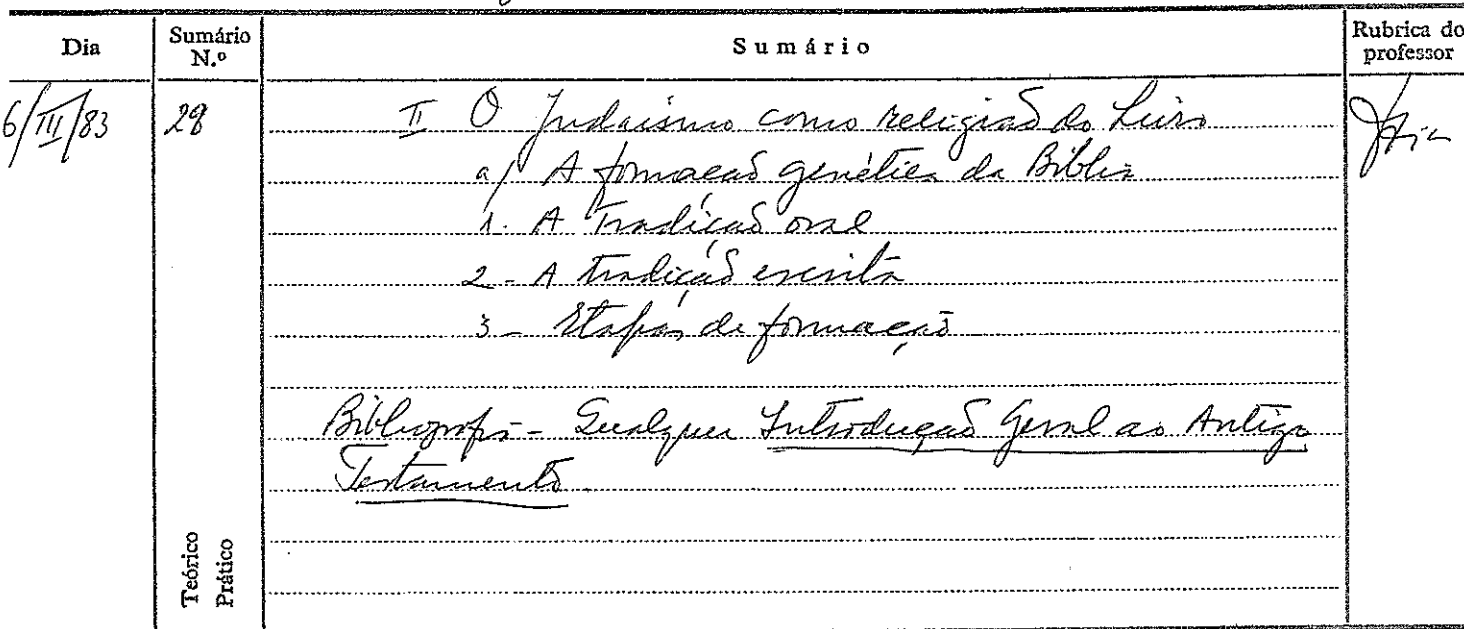 Dia
Sumário N.º
Sumário
Rubrica do professor
6/III/83
28
II O Judaísmo como religião do Livro
a) A formação genética da Bíblia
1. A Tradição oral
2 - A tradição escrita
3 - Etapas de formação
Bibliografia - Qualquer Introdução Geral ao Antigo
Testamento.
Teórico
Prático